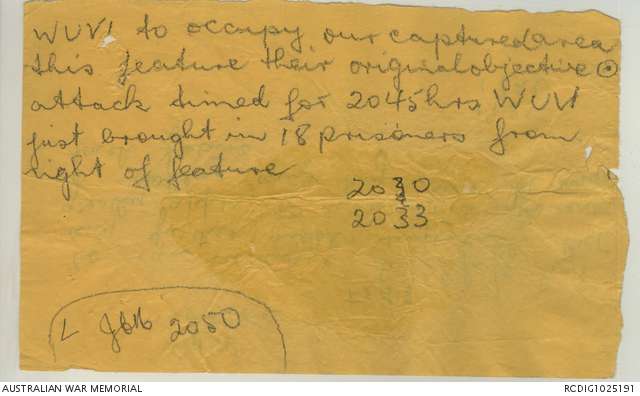 WUVI to occupy our captured area
this feature their original objective ⊙
attack timed for 2045hrs WUVI
just brought in 18 prisoners from
right of feature
2030
2033
L 2050
AUSTRALIAN WAR MEMORIAL
RCDIG1025191